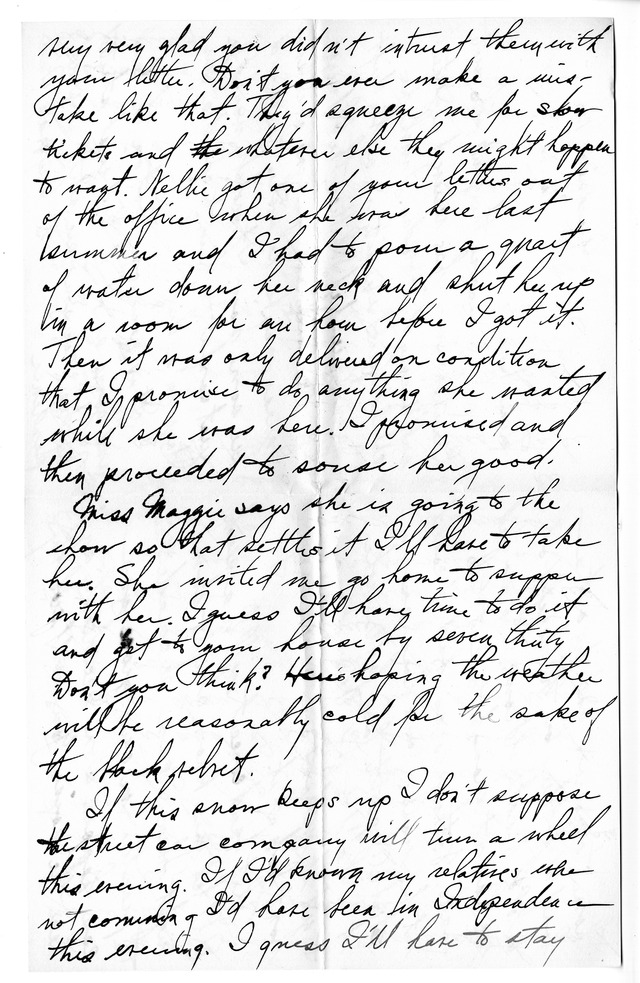 very very glad you didn't intrust them with
your letter. Don't you ever make a mis-
take like that. They'd squeeze me for show
tickets and the whatever else they might happen
to want. Nellie got one of your letters out
of the office when she was here last
summer and I had to pour a quart
of water down her neck and shut her up
in a room for an hour before I got it.
Then it was only delivered on condition
that I promise to do anything she wanted
while she was here. I promised and
then proceeded to souse her good.
Miss Maggie says she is going to the
show so that settles it I'll have to take
her. She invited me go home to supper
with her. I guess I'll have time to do it
and get to your house by seven thirty
Don't you think? Here's hoping the weather
will be reasonably cold for the sake of
the black velvet.
If this snow keeps up I don't suppose
the street car company will turn a wheel
this evening. If I'd known my relatives were
not comming I'd have been in Independence
this evening. I guess I'll have to stay